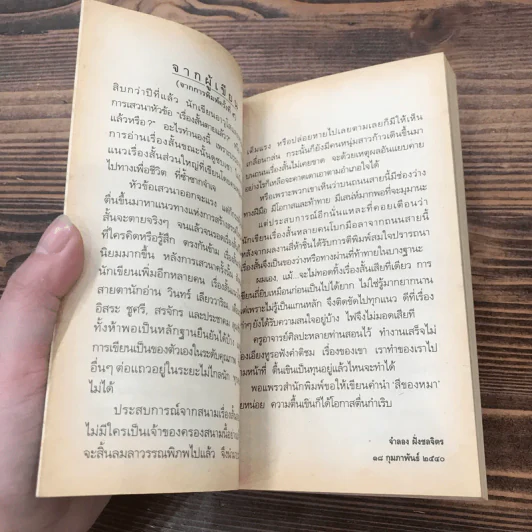 จากผู้เขียน
(จากการพิมพ์ครั้งที่
สิบกว่าปีที่แล้ว นักเขียน
การเสวนาหัวข้อ "เรื่องสั้นตายแล้ว?
แล้วหรือ?" อะไรทำนองนี้ เพราะ
การอ่านเรื่องสั้นขณะนั้น
แนวเรื่องสั้นส่วนใหญ่ที่เขียน
ไปทางเพื่อชีวิต ที่ซ้ำซากจำเจ
หัวข้อเสวนาออกจะแรง แต่ก็
ตื่นขึ้นมาหาแนวทางแห่งการสร้าง
สั้นจะตายจริงๆ จนแล้วจนรอดเรื่องสั้นก็
ที่ใครคิดหรือรู้สึก ตรงกันข้าม เรื่อง
นิยมมากขึ้น หลังการเสวนาครั้งนั้น
นักเขียนเพิ่มอีกหลายคน เรื่องสั้น
สายตานักอ่าน วินทร์ เลียววาริณ
อิสระ ชูศรี, สรจักร และประชาคม
ทั้งห้าพอเป็นหลักฐานยืนยันได้
การเขียนเป็นของตัวเองในระดับคุณภาพ
อื่นๆ ต่อแถวอยู่ในระยะไม่ไกลนัก
ไม่ได้
ประสบการณ์จากสนามเรื่องสั้น
ไม่มีใครเป็นเจ้าของครองสนามนี้อย่าง
จะสิ้นลมลาวรรณพิภพไปแล้ว จึง
เต็มแรง หรือปล่อยหายไปเลยตามเลยก็มีให้เห็น
เกลื่อนกล่น กระนั้นก็ยังมีคนหนุ่มสาวก้าวเดินขึ้นมา
บนถนนเรื่องสั้นไม่เคยขาด จะด้วยเหตุผลอันแยบคาย
อย่างไรก็เหลือจะคาดเดาเอาตามอำเภอใจได้
หรือเพราะพวกเขาเห็นว่าบนถนนสายนี้มีช่องว่าง
ทางฝีมือ มีโอกาสและท้าทาย มีเสน่ห์มากพอที่จะมุมานะ
แต่ประสบการณ์อีกนั่นแหละที่คอยเตือนว่า
นักเขียนเรื่องสั้นหลายคนโบกมือลาจากถนนสายนี้
หลังจากผลงานสี่ห้าชิ้นได้รับการตีพิมพ์สมใจปรารถนา
เรื่องสั้นจึงเป็นของว่างหรือทางผ่านที่ท้าทายในบางฐานะ
ผมเอง, แม้...จะไม่ทอดทิ้งเรื่องสั้นเสียทีเดียว การ
ถี่ยิบเหมือนก่อนเป็นไปได้ยาก ไม่ใช่รู้มากยากนาน
แต่เพราะไม่รู้เป็นแกนหลัก จึงติดขัดไปทุกแนว ดีที่เรื่อง
เก่าๆ ยังได้รับความสนใจอยู่บ้าง ไฟจึงไม่มอดเสียที
ครูอาจารย์ศิลปะหลายท่านสอนไว้ ทำงานเสร็จไม่
เอียงหูรอฟังคำติชม เรื่องของเขา เราทำของเราไป
ตามหน้าที่ ตื่นเขินเป็นทุนอยู่แล้วไหนจะทำได้
พอแพรวสำนักพิมพ์ขอให้เขียนคำนำ 'สีของหมา'
หน่อย ความตื้นเขินก็ได้โอกาสตื่นกำเริบ
จำลอง ฝั่งชลจิตร
๑๘ กุมภาพันธ์ ๒๕๔๐